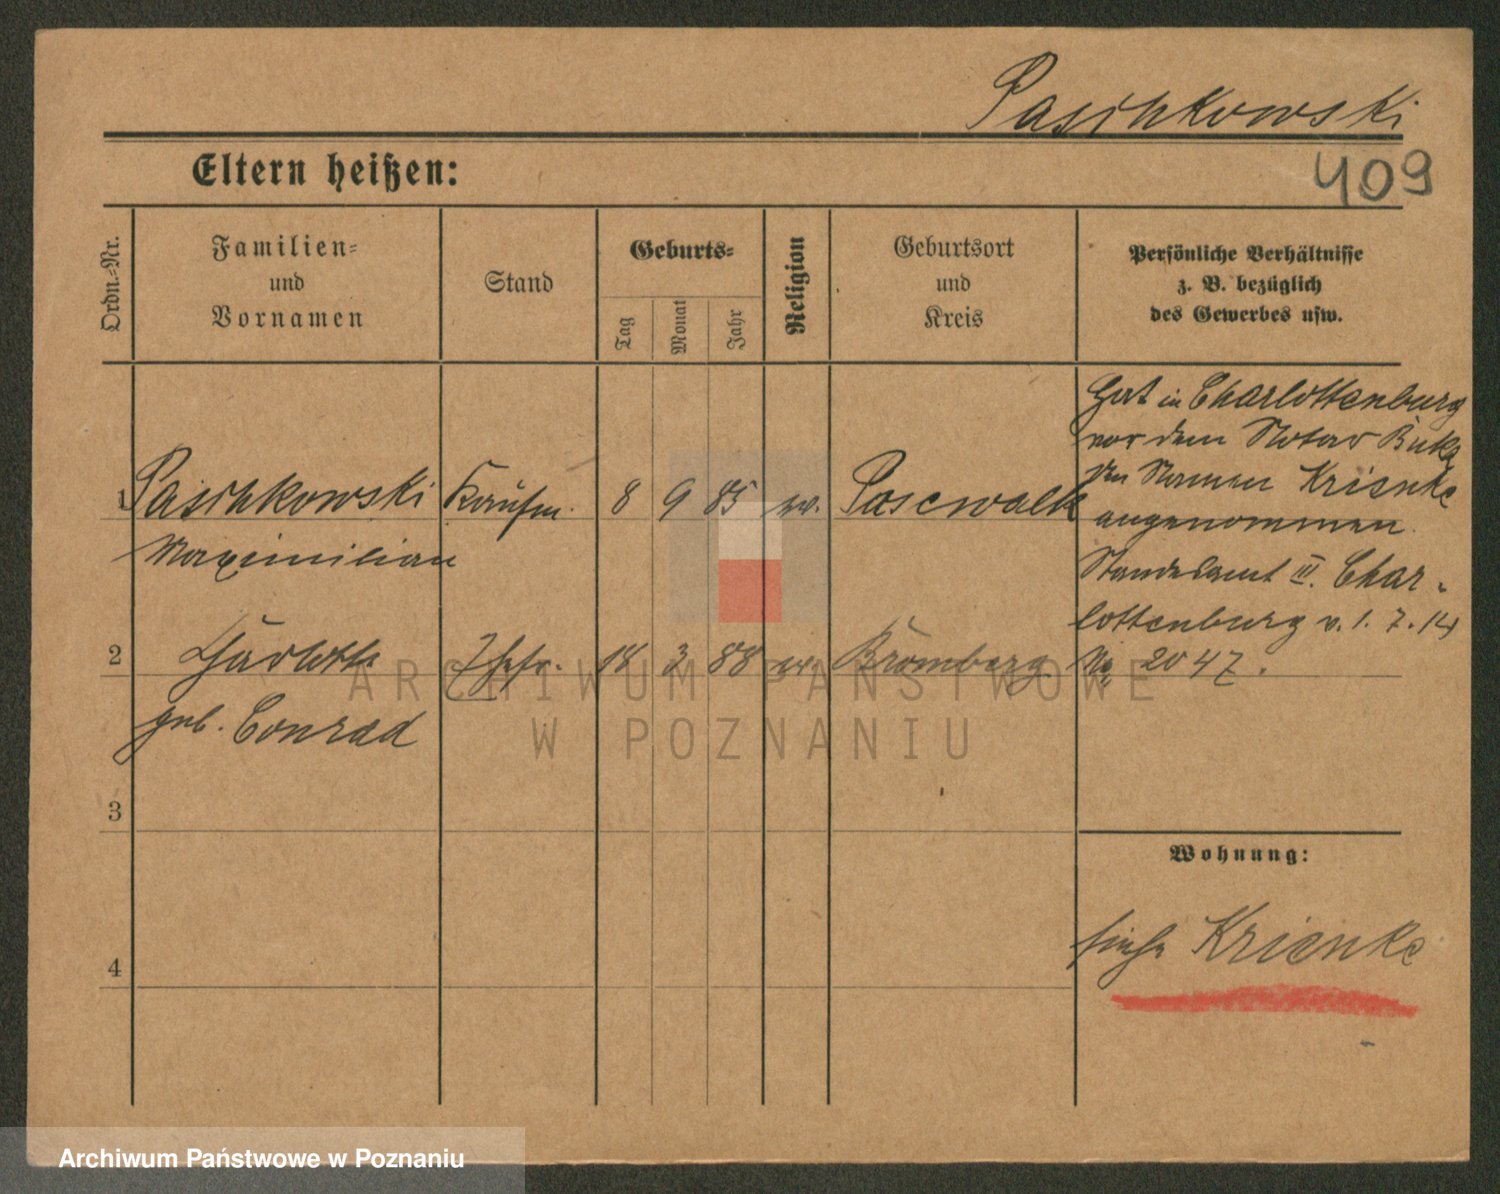 Paschkowski
409
Eltern heißen:
Ordn.-Nr.
Familien-
und
Vornamen
Stand
Geburts-
Tag
Monat
Jahr
Religion
Geburtsort
und
Kreis
Persönliche Verhältnisse
z. B. bezüglich
des Gewerbes usw.
1 Paschkowski Kaufm. 8 9 85 ev. Pasewalk
Maximilian
2 Charlotte Ehefr. 18 3 88 ev. Bromberg
geb. Conrad
3
4
Hat in Charlottenburg
vor dem Notar
den Namen Krienke
angenommen.
Standesamt III. Char-
lottenburg v. 1. 7. 14
No 2047.
Wohnung:
siehe Krienke
ARCHIWUM PAŃSTWOWE
W POZNANIU
Archiwum Państwowe w Poznaniu